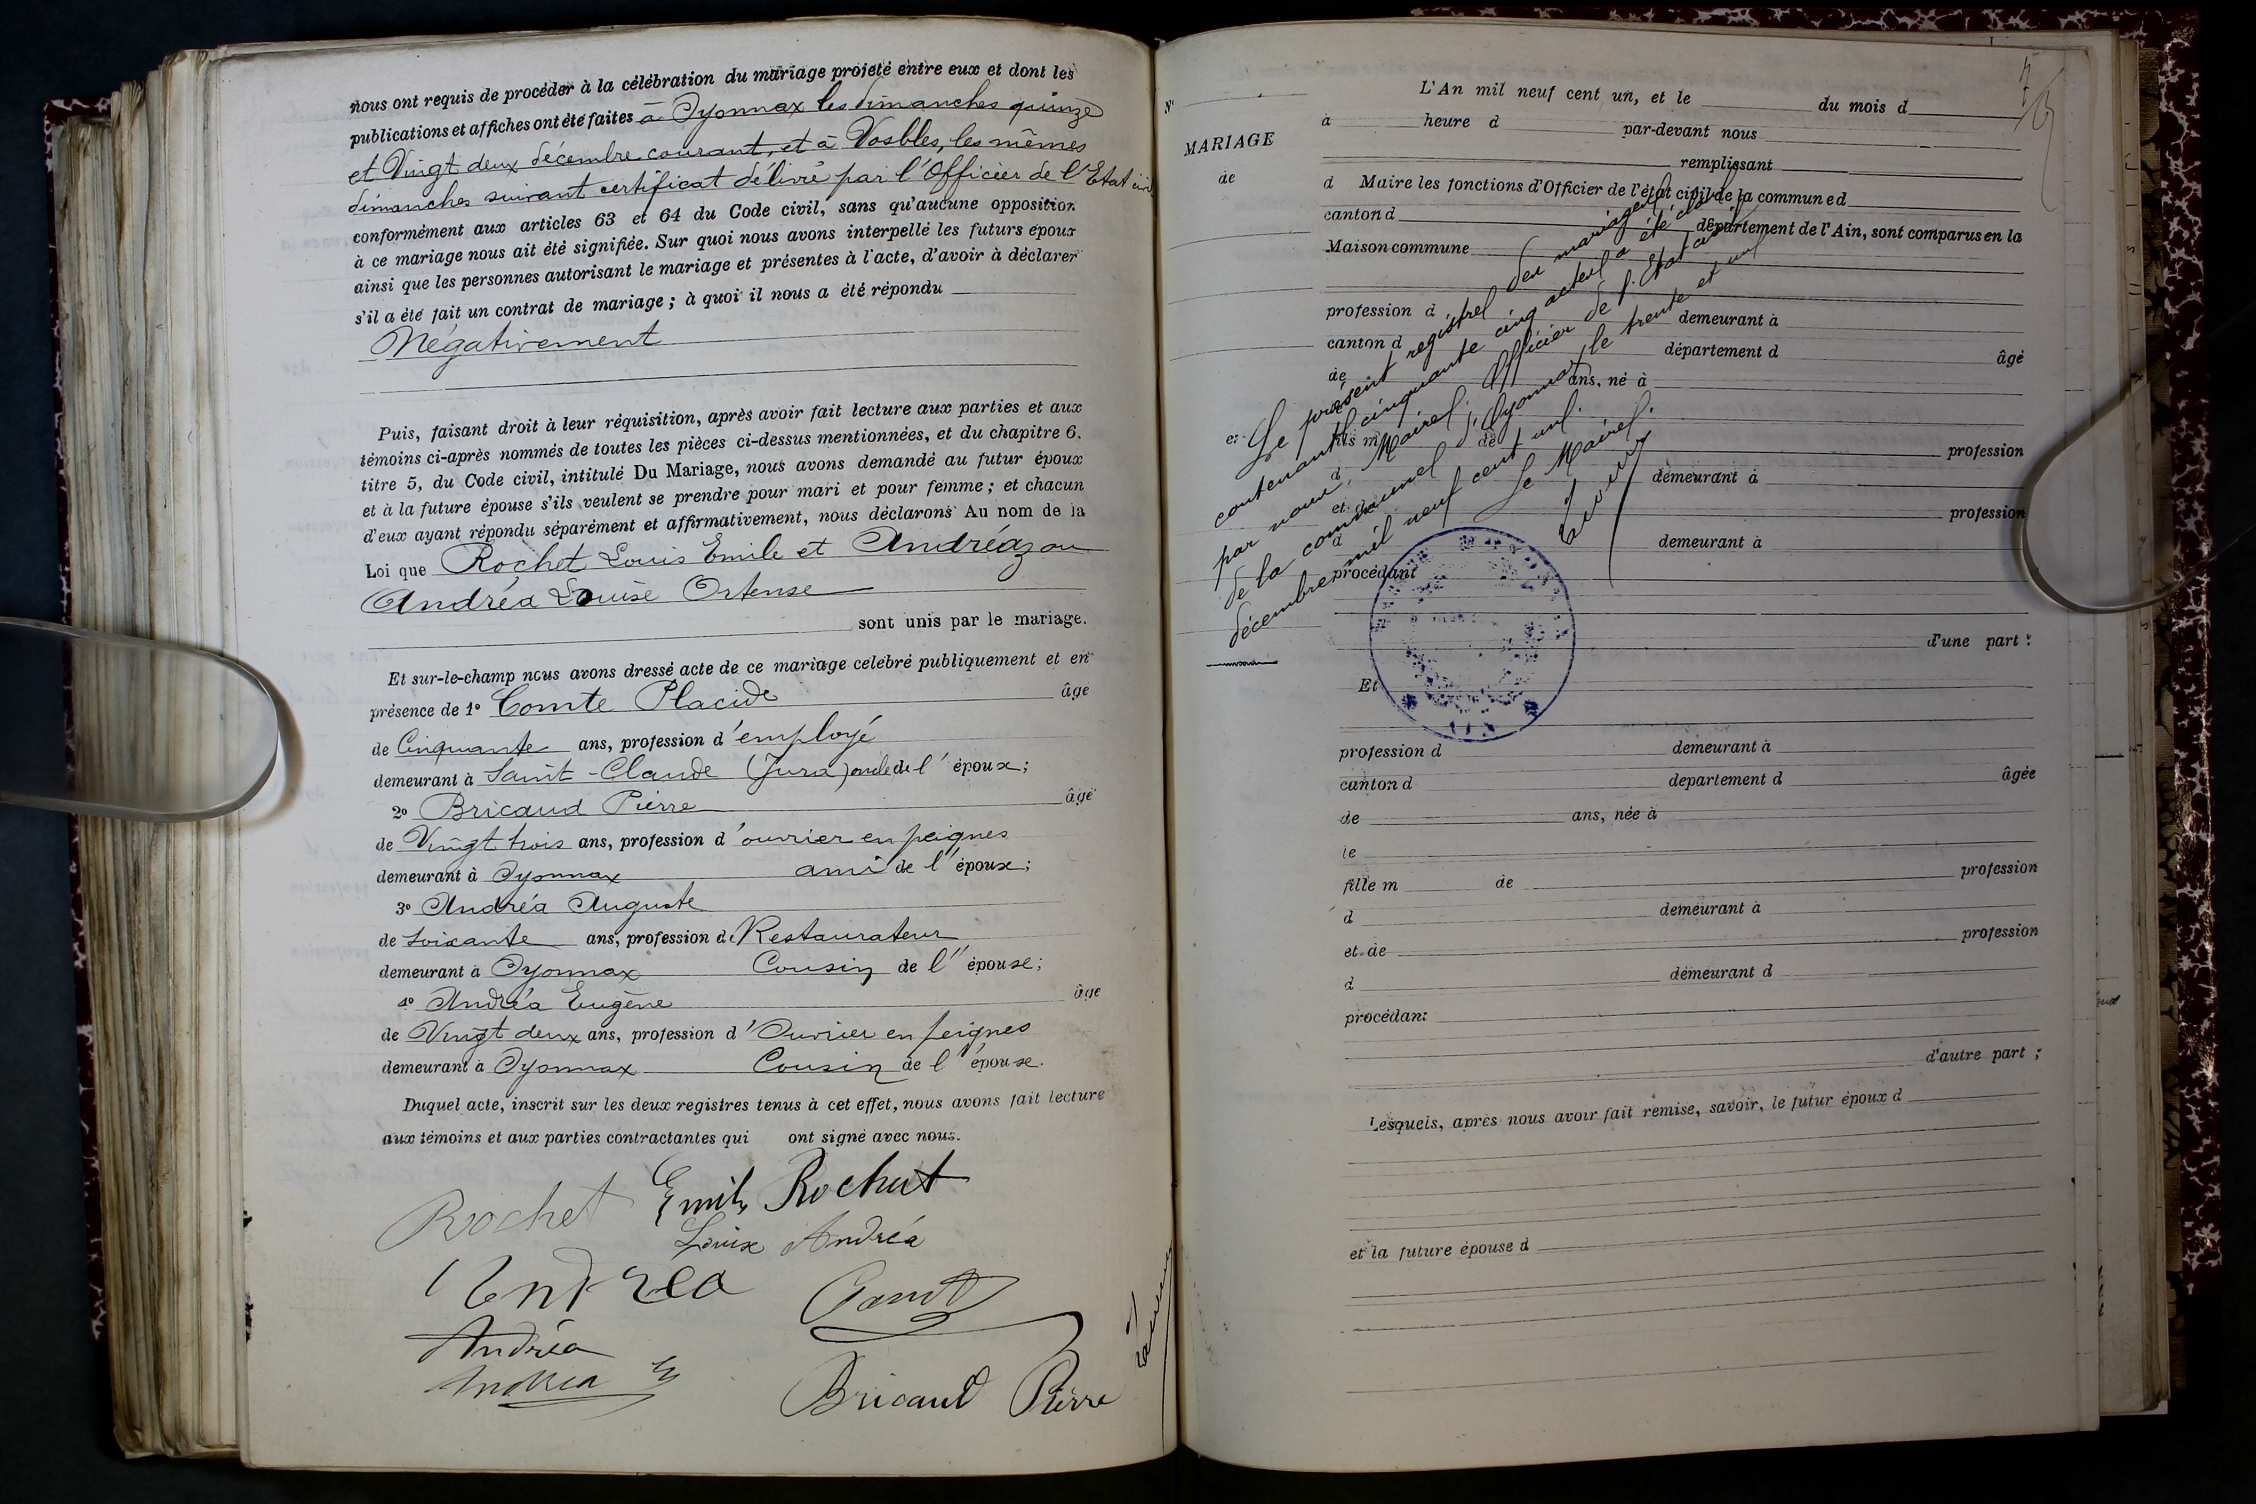 nous ont requis de procéder à la célébration du mariage projeté entre eux et dont les
publications et affiches ont été faites à Oyonnax les dimanches quinze
et Vingt deux décembre courant, et à Vosbles, les mêmes
dimanches suivant certificat délivré par l'Officier de l'Etat civil
conformément aux articles 63 et 64 du Code civil, sans qu'aucune opposition
à ce mariage nous ait été signifiée. Sur quoi nous avons interpellé les futurs époux
ainsi que les personnes autorisant le mariage et présentes à l'acte, d'avoir à déclarer
s'il a été fait un contrat de mariage ; à quoi il nous a été répondu
Négativement
Puis, faisant droit à leur réquisition, après avoir fait lecture aux parties et aux
témoins ci-après nommés de toutes les pièces ci-dessus mentionnées, et du chapitre 6.
titre 5, du Code civil, intitulé Du Mariage, nous avons demandé au futur époux
et à la future épouse s'ils veulent se prendre pour mari et pour femme ; et chacun
d'eux ayant répondu séparément et affirmativement, nous déclarons Au nom de la
Loi que Rochet Louis Emile et Andréazon
Andréa Louise Ortense
sont unis par le mariage.
Et sur-le-champ nous avons dressé acte de ce mariage célébré publiquement et en
présence de 1º Comte Placide âgé
de Cinquante ans, profession d'employé
demeurant à Saint-Claude (Jura) oncle de l' époux ;
2º Bricaud Pierre âgé
de Vingt trois ans, profession d'ouvrier en peignes
demeurant à Oyonnax ami de l' époux ;
3º Andréa Auguste
de soixante ans, profession de Restaurateur
demeurant à Oyonnax Cousin de l' épouse ;
4º Andréa Eugène âgé
de Vingt deux ans, profession d'Ouvrier en peignes
demeurant à Oyonnax Cousin de l' épouse.
Duquel acte, inscrit sur les deux registres tenus à cet effet, nous avons fait lecture
aux témoins et aux parties contractantes qui ont signé avec nous.
Rochet Emile Rochet
Louise Andréa
Andréa
Andréa
Andréa E
Bricaud Pierre
Nº
MARIAGE
de
et
L'An mil neuf cent un, et le du mois d
à heure d par-devant nous
remplissant
d Maire les fonctions d'Officier de l'état civil de la commune d
canton d département de l'Ain, sont comparus en la
Maison commune
profession d demeurant à
canton d département d âgé
de ans, né à
fils m de profession
d demeurant à
et de profession
d demeurant à
procédant
d'une part :
Et
profession d demeurant à
canton d département d âgée
de ans, née à
le
fille m de profession
d demeurant à
et de profession
d demeurant d
procédant
d'autre part ;
Lesquels, après nous avoir fait remise, savoir, le futur époux d
et la future épouse d
Le présent registre des mariages
contenant cinquante cinq actes a été clos
par nous, Maire, Officier de l'Etat civil
de la commune d'Oyonnax, le trente et un
décembre mil neuf cent un.
Le Maire.